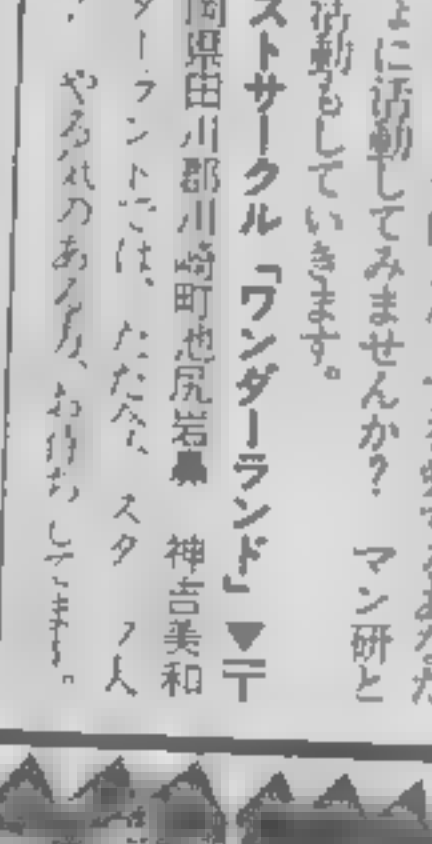 ょに活動してみませんか? マン研と
活動もしていきます。
ストサークル「ワンダーランド」▼〒
岡県田川郡川崎町池尻岩 神吉美和
ダーランドでは、ただ今、スタッフ人
やる気のある方、お待ちしてます。